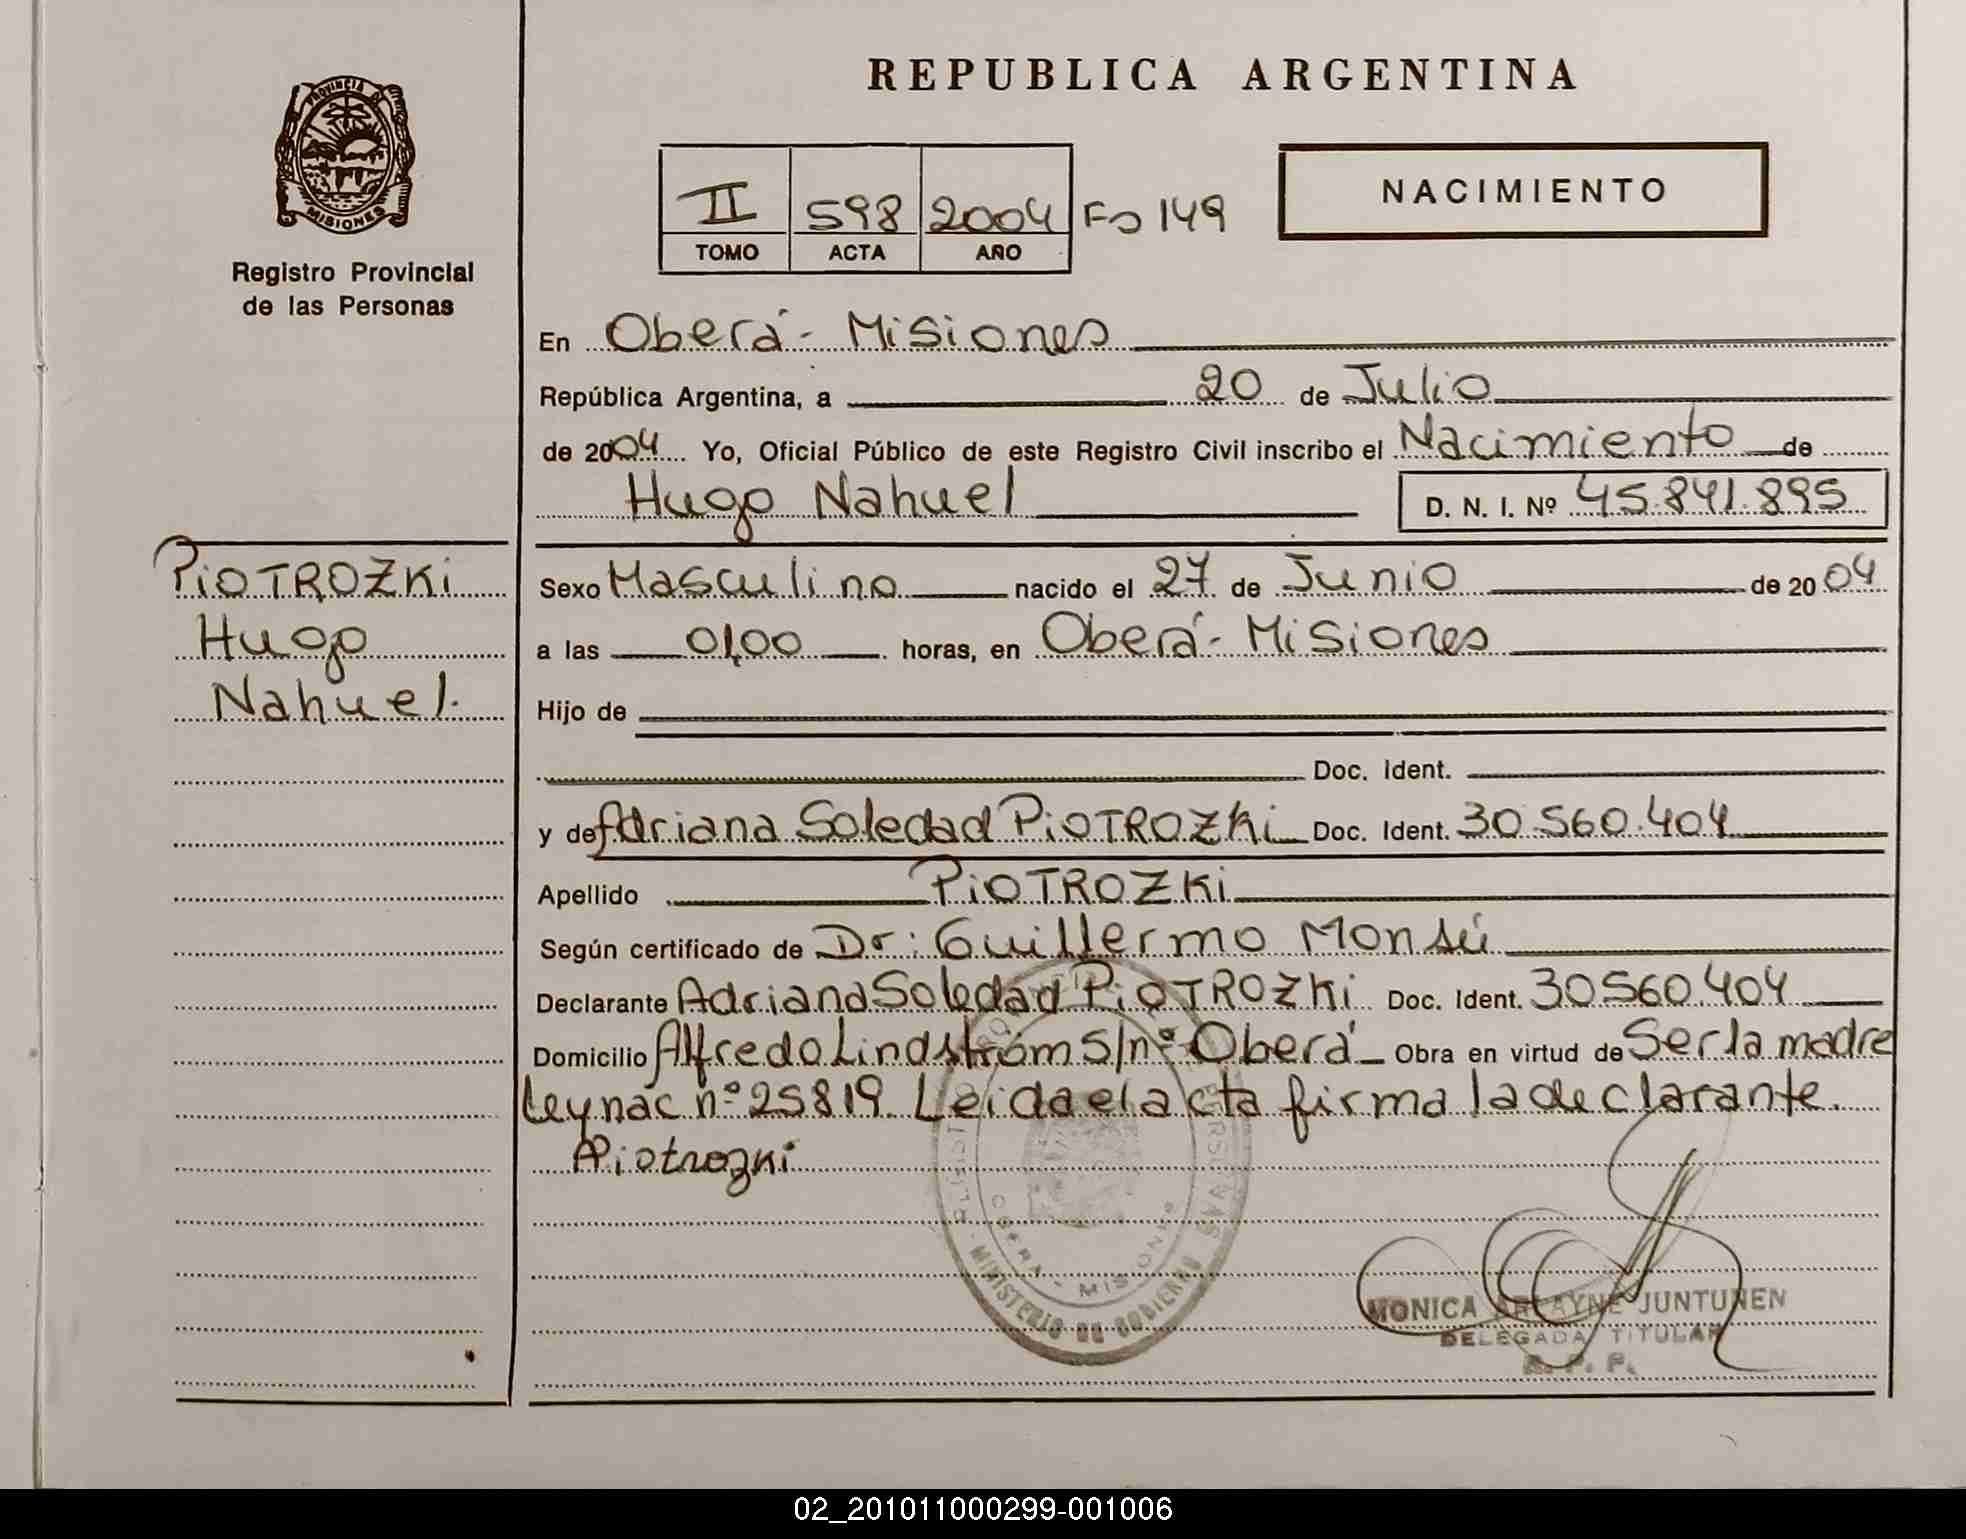 PROVINCIA DE
MISIONES
Registro Provincial
de las Personas
PIOTROZKI
Hugo
Nahuel.
REPUBLICA ARGENTINA
II 598 2004 Fo 149
TOMO ACTA AÑO
NACIMIENTO
En Oberá - Misiones
República Argentina, a 20 de Julio
de 2004 Yo, Oficial Público de este Registro Civil inscribo el Nacimiento de
Hugo Nahuel D. N. I. Nº 45.841.895
Sexo Masculino nacido el 27 de Junio de 2004
a las 01,00 horas, en Oberá - Misiones
Hijo de
Doc. Ident.
y de Adriana Soledad PIOTROZKI Doc. Ident. 30.560.404
Apellido PIOTROZKI
Según certificado de Dr: Guillermo Monsú
Declarante Adriana Soledad PIOTROZKI Doc. Ident. 30560.404
Domicilio Alfredo Lindström S/nº Oberá Obra en virtud de Ser la madre
Ley nac nº 25819. Leida el acta firma la declarante.
APiotrozki
MINISTERIO DE GOBIERNO
OBERA - MISIONES
MONICA JUNTUNEN
DELEGADA TITULAR
R. P. P.
02_201011000299-001006